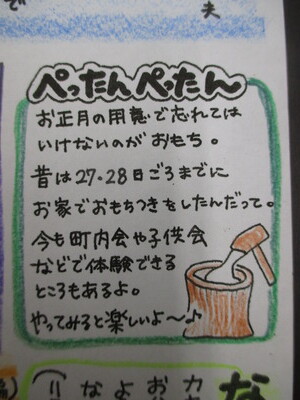 で
夫
ぺったんぺったん
お正月の用意で忘れては
いけないのがおもち。
昔は27・28日ごろまでに
お家でおもちつきをしたんだって。
今も町内会や子供会
などで体験できる
ところもあるよ。
やってみると楽しいよ〜♪
な